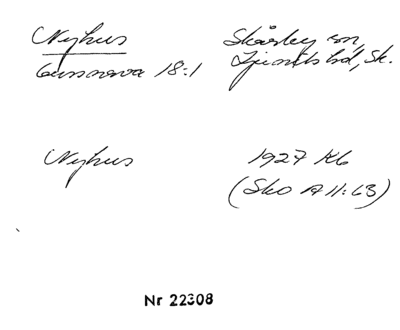 Nyhus
Skårby sn,
Gussnava 18:1
Ljunits hd, Sk.
Nyhus
1927 Kb
(Sko A II:63)
Nr 22308